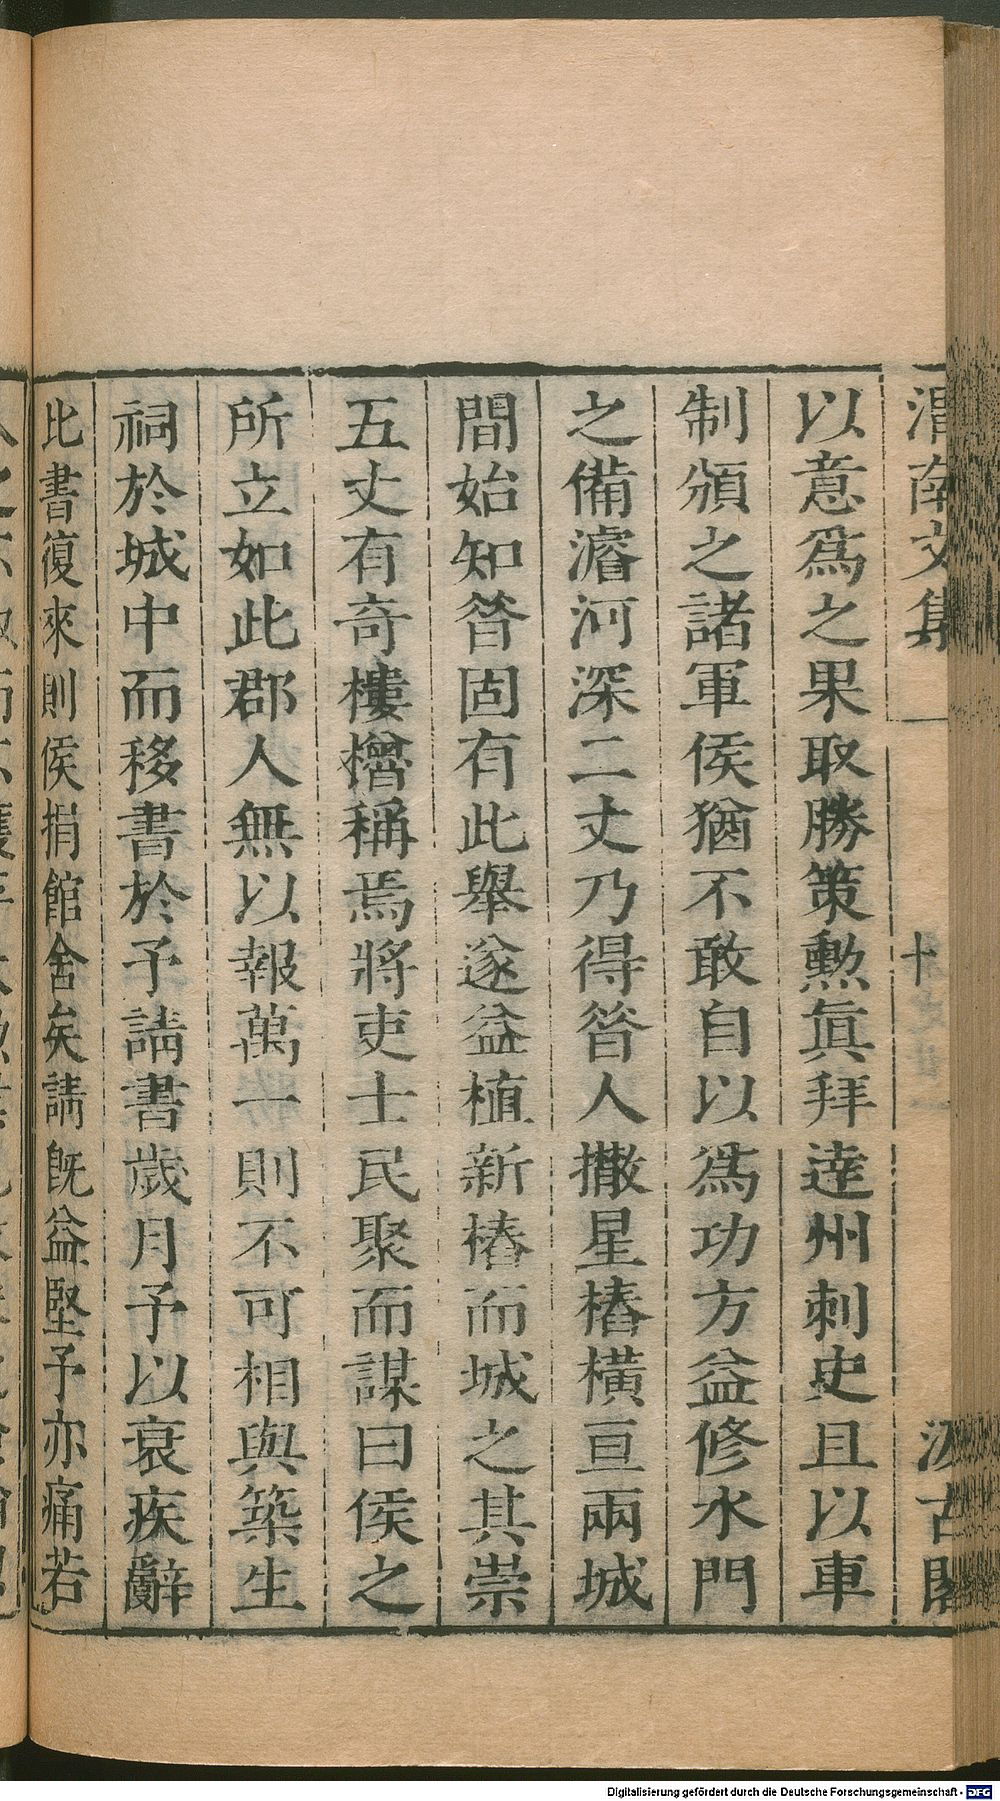 渭南文集 十 汲古閣
以意爲之果取勝策勲眞拜逹州刺史且以車
制頒之諸軍侯猶不敢自以爲功方益修水門
之備濬河深二丈乃得昝人撒星樁橫亘兩城
間始知昝固有此舉遂益植新樁而城之其崇
五丈有奇樓櫓稱焉將吏士民聚而謀曰侯之
所立如此郡人無以報萬一則不可相與築生
祠於城中而移書於予請書歲月予以衰疾辭
比書復來則侯捐館舍矣請既益堅予亦痛若
Digitalisierung gefördert durch die Deutsche Forschungsgemeinschaft - DFG